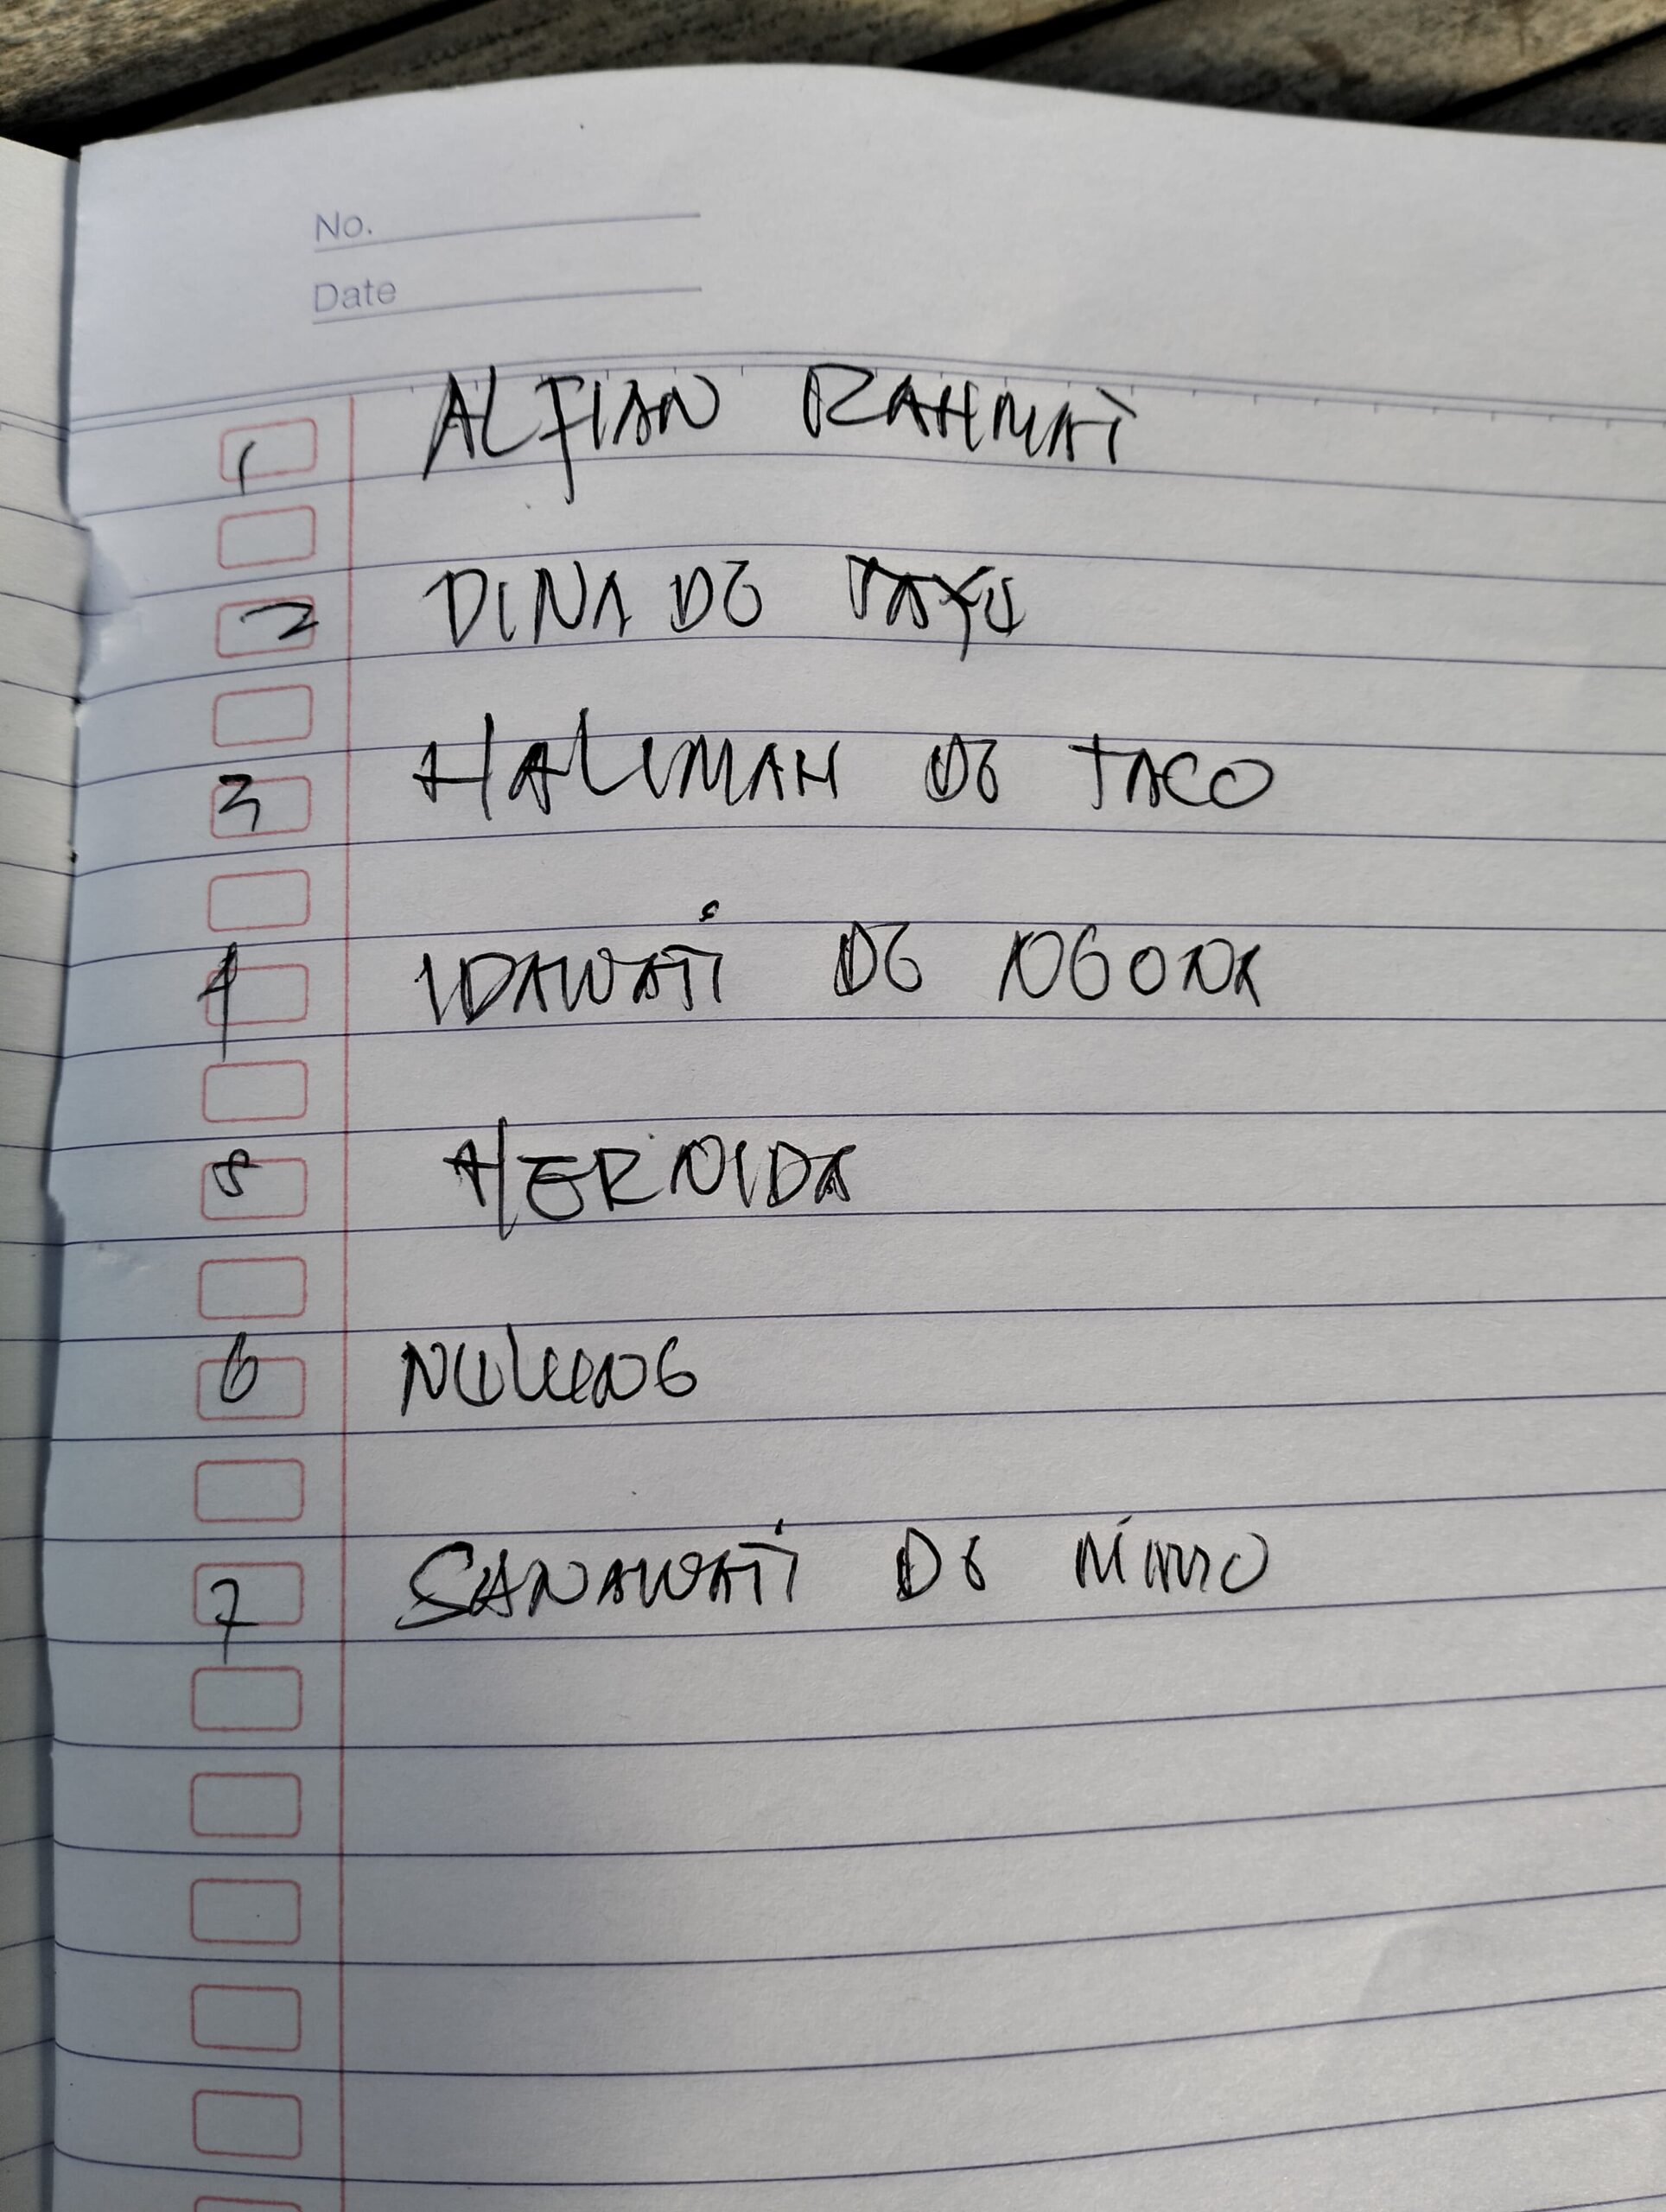 No.
Date
1 ALFIAN RAHMAT
2 DINA DG
3 HALIMAH DG TACO
4 IDAWATI DG NGONA
5 HERNIDA
6
7 SANAWATI DG